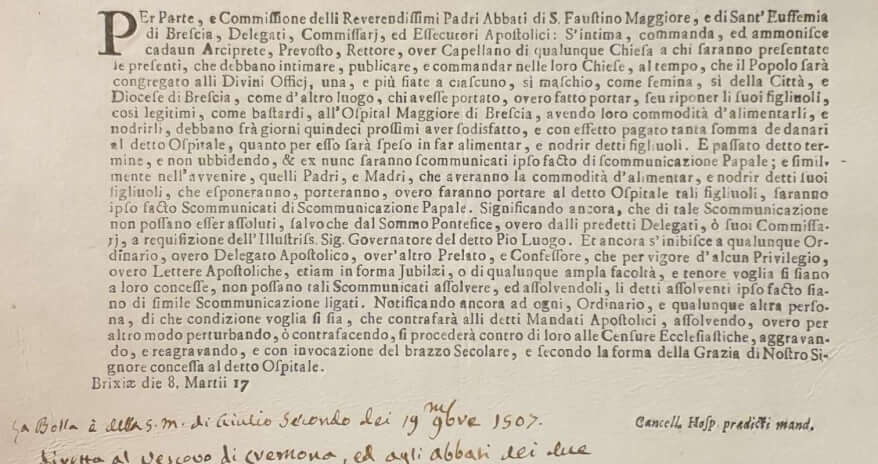 PEr Parte, e Commissione delli Reverendissimi Padri Abbati di S. Faustino Maggiore, e di Sant' Euffemia
di Brescia, Delegati, Commissarj, ed Essecutori Apostolici: S'intima, commanda, ed ammonisce
cadaun Arciprete, Prevosto, Rettore, over Capellano di qualunque Chiesa a chi saranno presentate
le presenti, che debbano intimare, publicare, e commandar nelle loro Chiese, al tempo, che il Popolo sarà
congregato alli Divini Officj, una, e più fiate a ciascuno, sì maschio, come femina, sì della Città, e
Diocese di Brescia, come d'altro luogo, chi avesse portato, overo fatto portar, seu riponer li suoi figliuoli,
così legitimi, come bastardi, all'Ospital Maggiore di Brescia, avendo loro commodità d'alimentarli, e
nodrirli, debbano frà giorni quindeci prossimi aver sodisfatto, e con effetto pagato tanta somma de danari
al detto Ospitale, quanto per esso sarà speso in far alimentar, e nodrir detti figliuoli. E passato detto ter-
mine, e non ubbidendo, & ex nunc saranno scommunicati ipso facto di scommunicazione Papale; e simil-
mente nell'avvenire, quelli Padri, e Madri, che averanno la commodità d'alimentar, e nodrir detti suoi
figliuoli, che esponeranno, porteranno, overo faranno portare al detto Ospitale tali figliuoli, saranno
ipso facto Scommunicati di Scommunicazione Papale. Significando ancora, che di tale Scommunicazione
non possano esser assoluti, salvo che dal Sommo Pontefice, overo dalli predetti Delegati, ò suoi Commissa-
rj, a requisizione dell'Illustriss. Sig. Governatore del detto Pio Luogo. Et ancora s'inibisce a qualunque Or-
dinario, overo Delegato Apostolico, over'altro Prelato, e Confessore, che per vigore d'alcun Privilegio,
overo Lettere Apostoliche, etiam in forma Jubilæi, o di qualunque ampla facoltà, e tenore voglia si siano
a loro concesse, non possano tali Scommunicati assolvere, ed assolvendoli, li detti assolventi ipso facto sia-
no di simile Scommunicazione ligati. Notificando ancora ad ogni, Ordinario, e qualunque altra perso-
na, di che condizione voglia si sia, che contrafarà alli detti Mandati Apostolici, assolvendo, overo per
altro modo perturbando, ò contrafacendo, si procederà contro di loro alle Censure Ecclesiastiche, aggravan-
do, e reagravando, e con invocazione del brazzo Secolare, e secondo la forma della Grazia di Nostro Si-
gnore concessa al detto Ospitale.
Brixiæ die 8. Martii 17
La Bolla è della s. m. di Giulio Secondo dei 19 9bre 1507.
Cancell. Hosp. predicti mand.
diretta al Vescovo di Cremona, ed agli abbati dei due